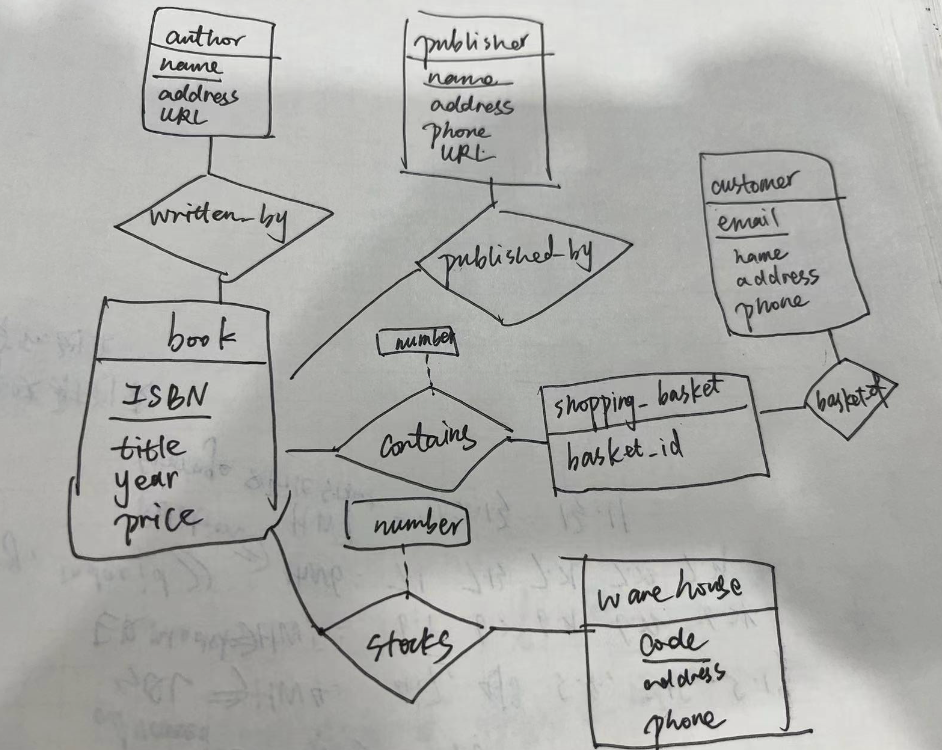 author
name
address
URL
publisher
name
address
phone
URL
written_by
published_by
customer
email
name
address
phone
book
ISBN
title
year
price
number
contains
shopping_basket
basket_id
basket_of
number
stocks
warehouse
code
address
phone